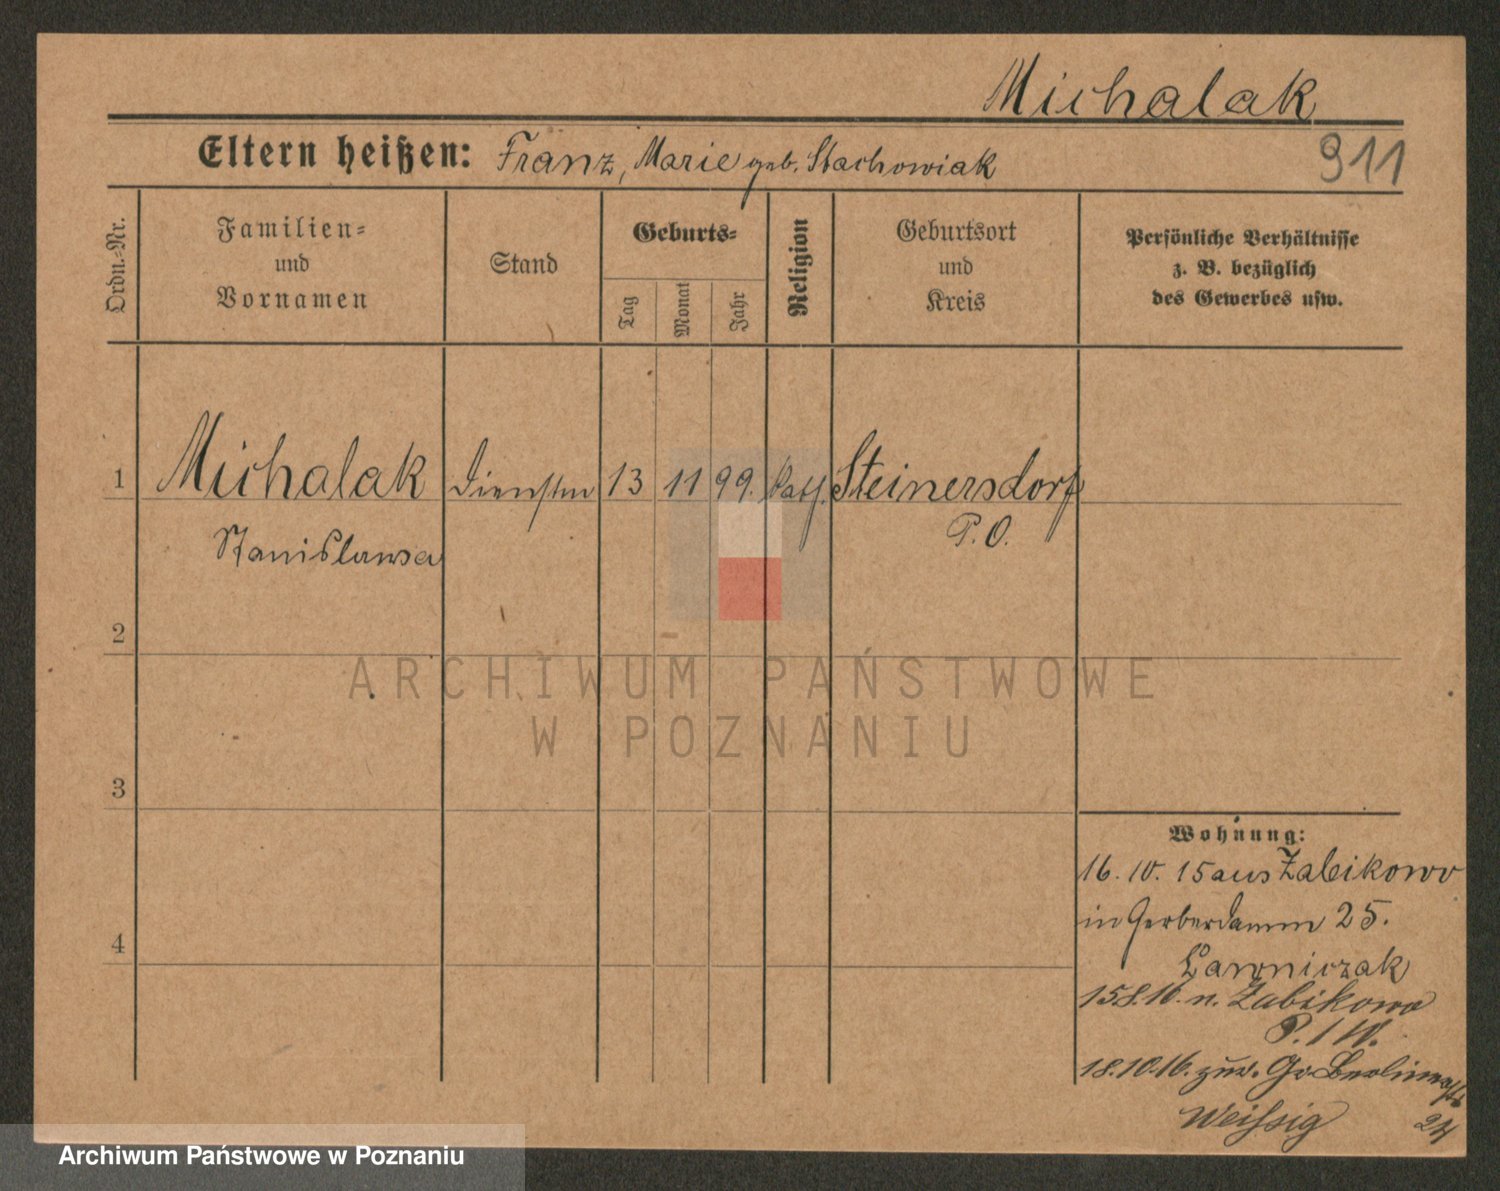 Michalak
Eltern heißen: Franz, Marie geb. Stachowiak
911
Ordn.-Nr.
Familien-
und
Vornamen
Stand
Geburts-
Tag
Monat
Jahr
Religion
Geburtsort
und
Kreis
Persönliche Verhältnisse
z. B. bezüglich
des Gewerbes usw.
1 Michalak Dienstm 13 11 99. kath. Steinersdorf
Stanislawa P. O.
2
3
4
Wohnung:
16. 10. 15 aus Zabikowo
in Gerberdamm 25.
Lawniczak
15.8.16. n. Zabikowo
P. / W.
18.10.16. zur. Gr. Berlinerstr
Weißig 24
ARCHIWUM PAŃSTWOWE
W POZNANIU
Archiwum Państwowe w Poznaniu